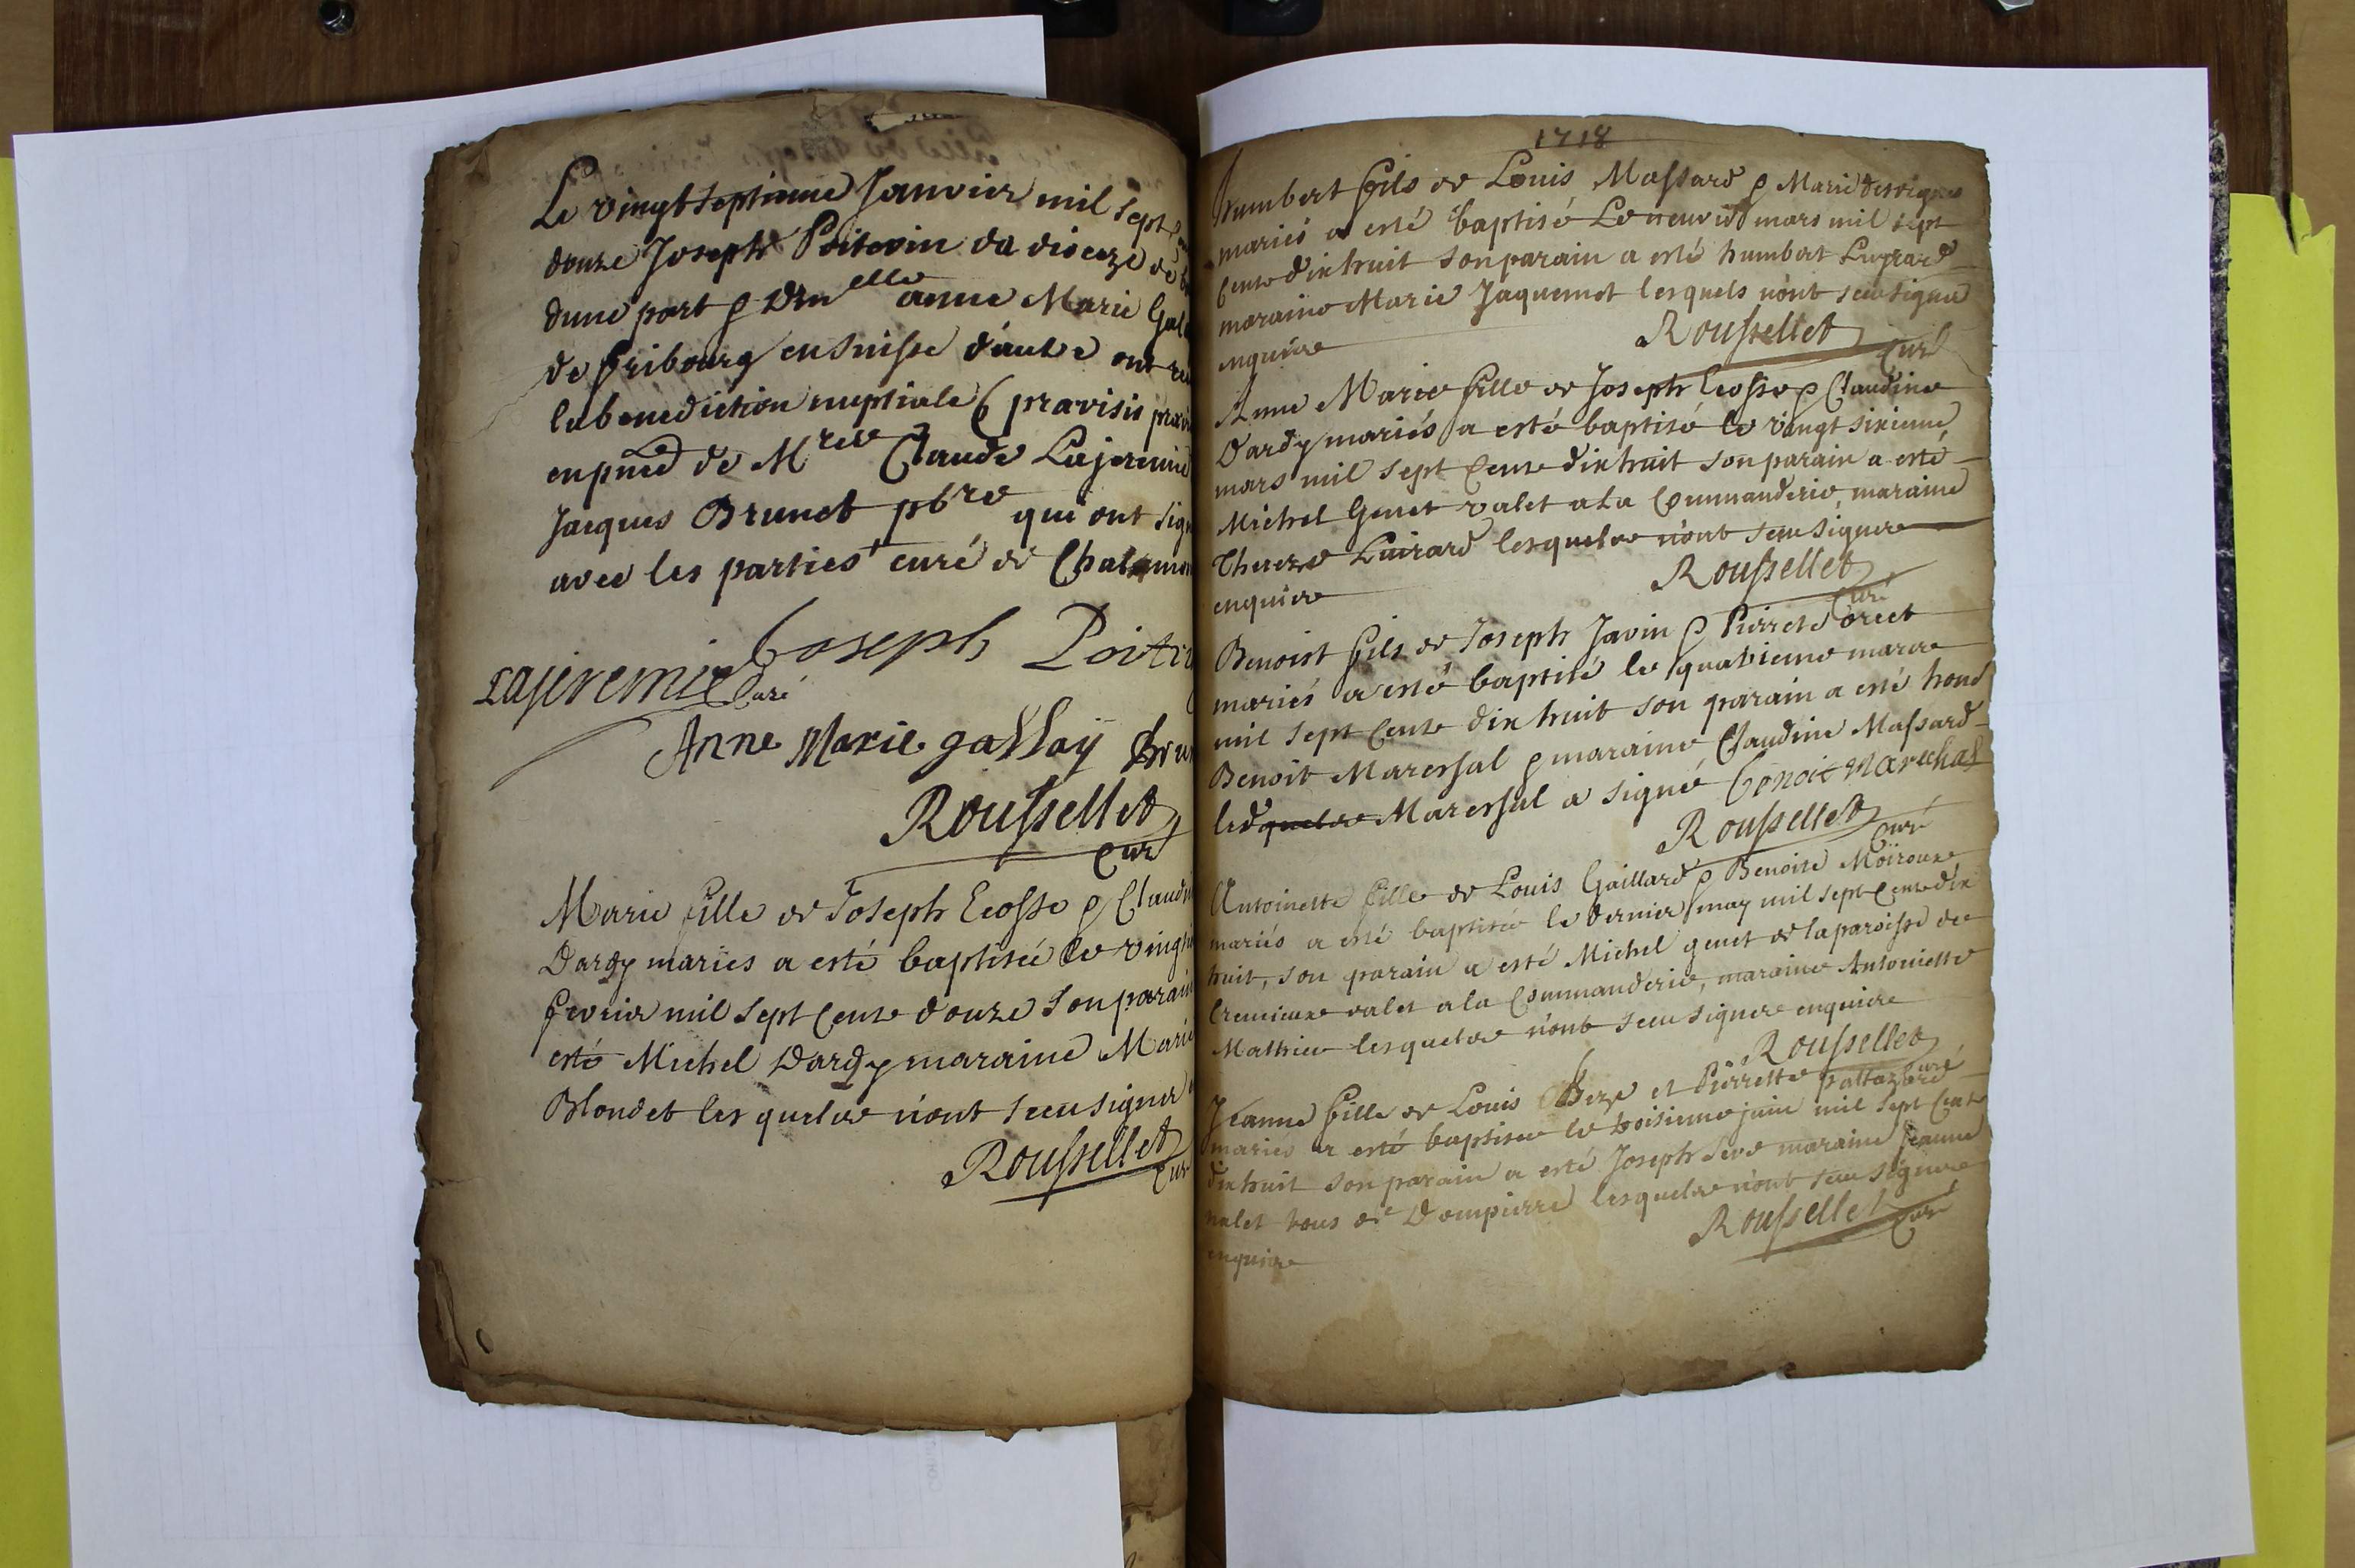 Le vingt septieme Janvier mil sept
douze Joseph Poitevin du dioceze de
dune part & Dm elle anne Marie Gal
de fribourg en Suisse d'autre ont re
la benediction nuptiale (praevisis prae
en pnce de M re Claude Lajeremie
Jacques Brunet pbre qui ont sign
avec les parties curé de Chat
Joseph Poite
Lajeremie Curé
Anne Marie gallay Bru
Rousellet
Curé
Marie fille de Joseph Ecosse & Claudi
Dardy mariés a esté baptisée le vingt
fevrier mil sept cents douze son parain
esté Michel Dardy maraine Marie
Blondet les quels n'ont sceu signer
Roussellet
Curé
1718
humbert fils de Louis Massard & Marie desvignes
mariés a esté baptisé Le neuvie mars mil sept
cents dixhuit son parain a esté humbert
maraine Marie Jaquemot lesquels n'ont sceu signer
enquire
Roussellet
Curé
Anne Marie fille de Joseph Ecosse & Claudine
Dardy mariés a esté baptisé le vingt sixieme
mars mil sept cents dixhuit son parain a esté
Michel Genet valet a la Commanderie, maraine
Thereze Luirard lesquels n'ont sceu signer
enquire
Roussellet
Curé
Benoist fils de Joseph Javin & Pierrete
mariés a esté baptisé le quatrieme
mil sept cents dixhuit son parain a esté hond
Benoit Mareshal & maraine Claudine Massard
led quels Mareshal a signé benoit Marechal
Roussellet
Curé
Antoinette fille de Louis Gaillard & Benoite Moiroux
mariés a esté baptisée le dernier may mil sept cents dix
huit, son parain a esté Michel genet de la paroisse de
Cremieux valet a la Commanderie, maraine Antoinette
Mathieu lesquels n'ont sceu signer enquire
Roussellet
Curé
Jeanne fille de Louis Beze et Pierrette
mariés a esté baptisée le troisieme juin mil sept Cents
dixhuit son parain a esté Joseph Seve maraine Jeanne
valet tous de Dompierre lesquels n'ont sceu signer
enquire
Roussellet
Curé